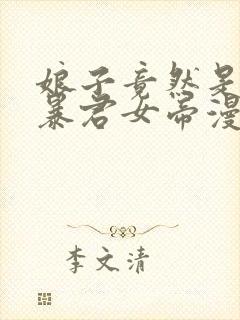 娘子竟然是
暴君女帝漫
李文清